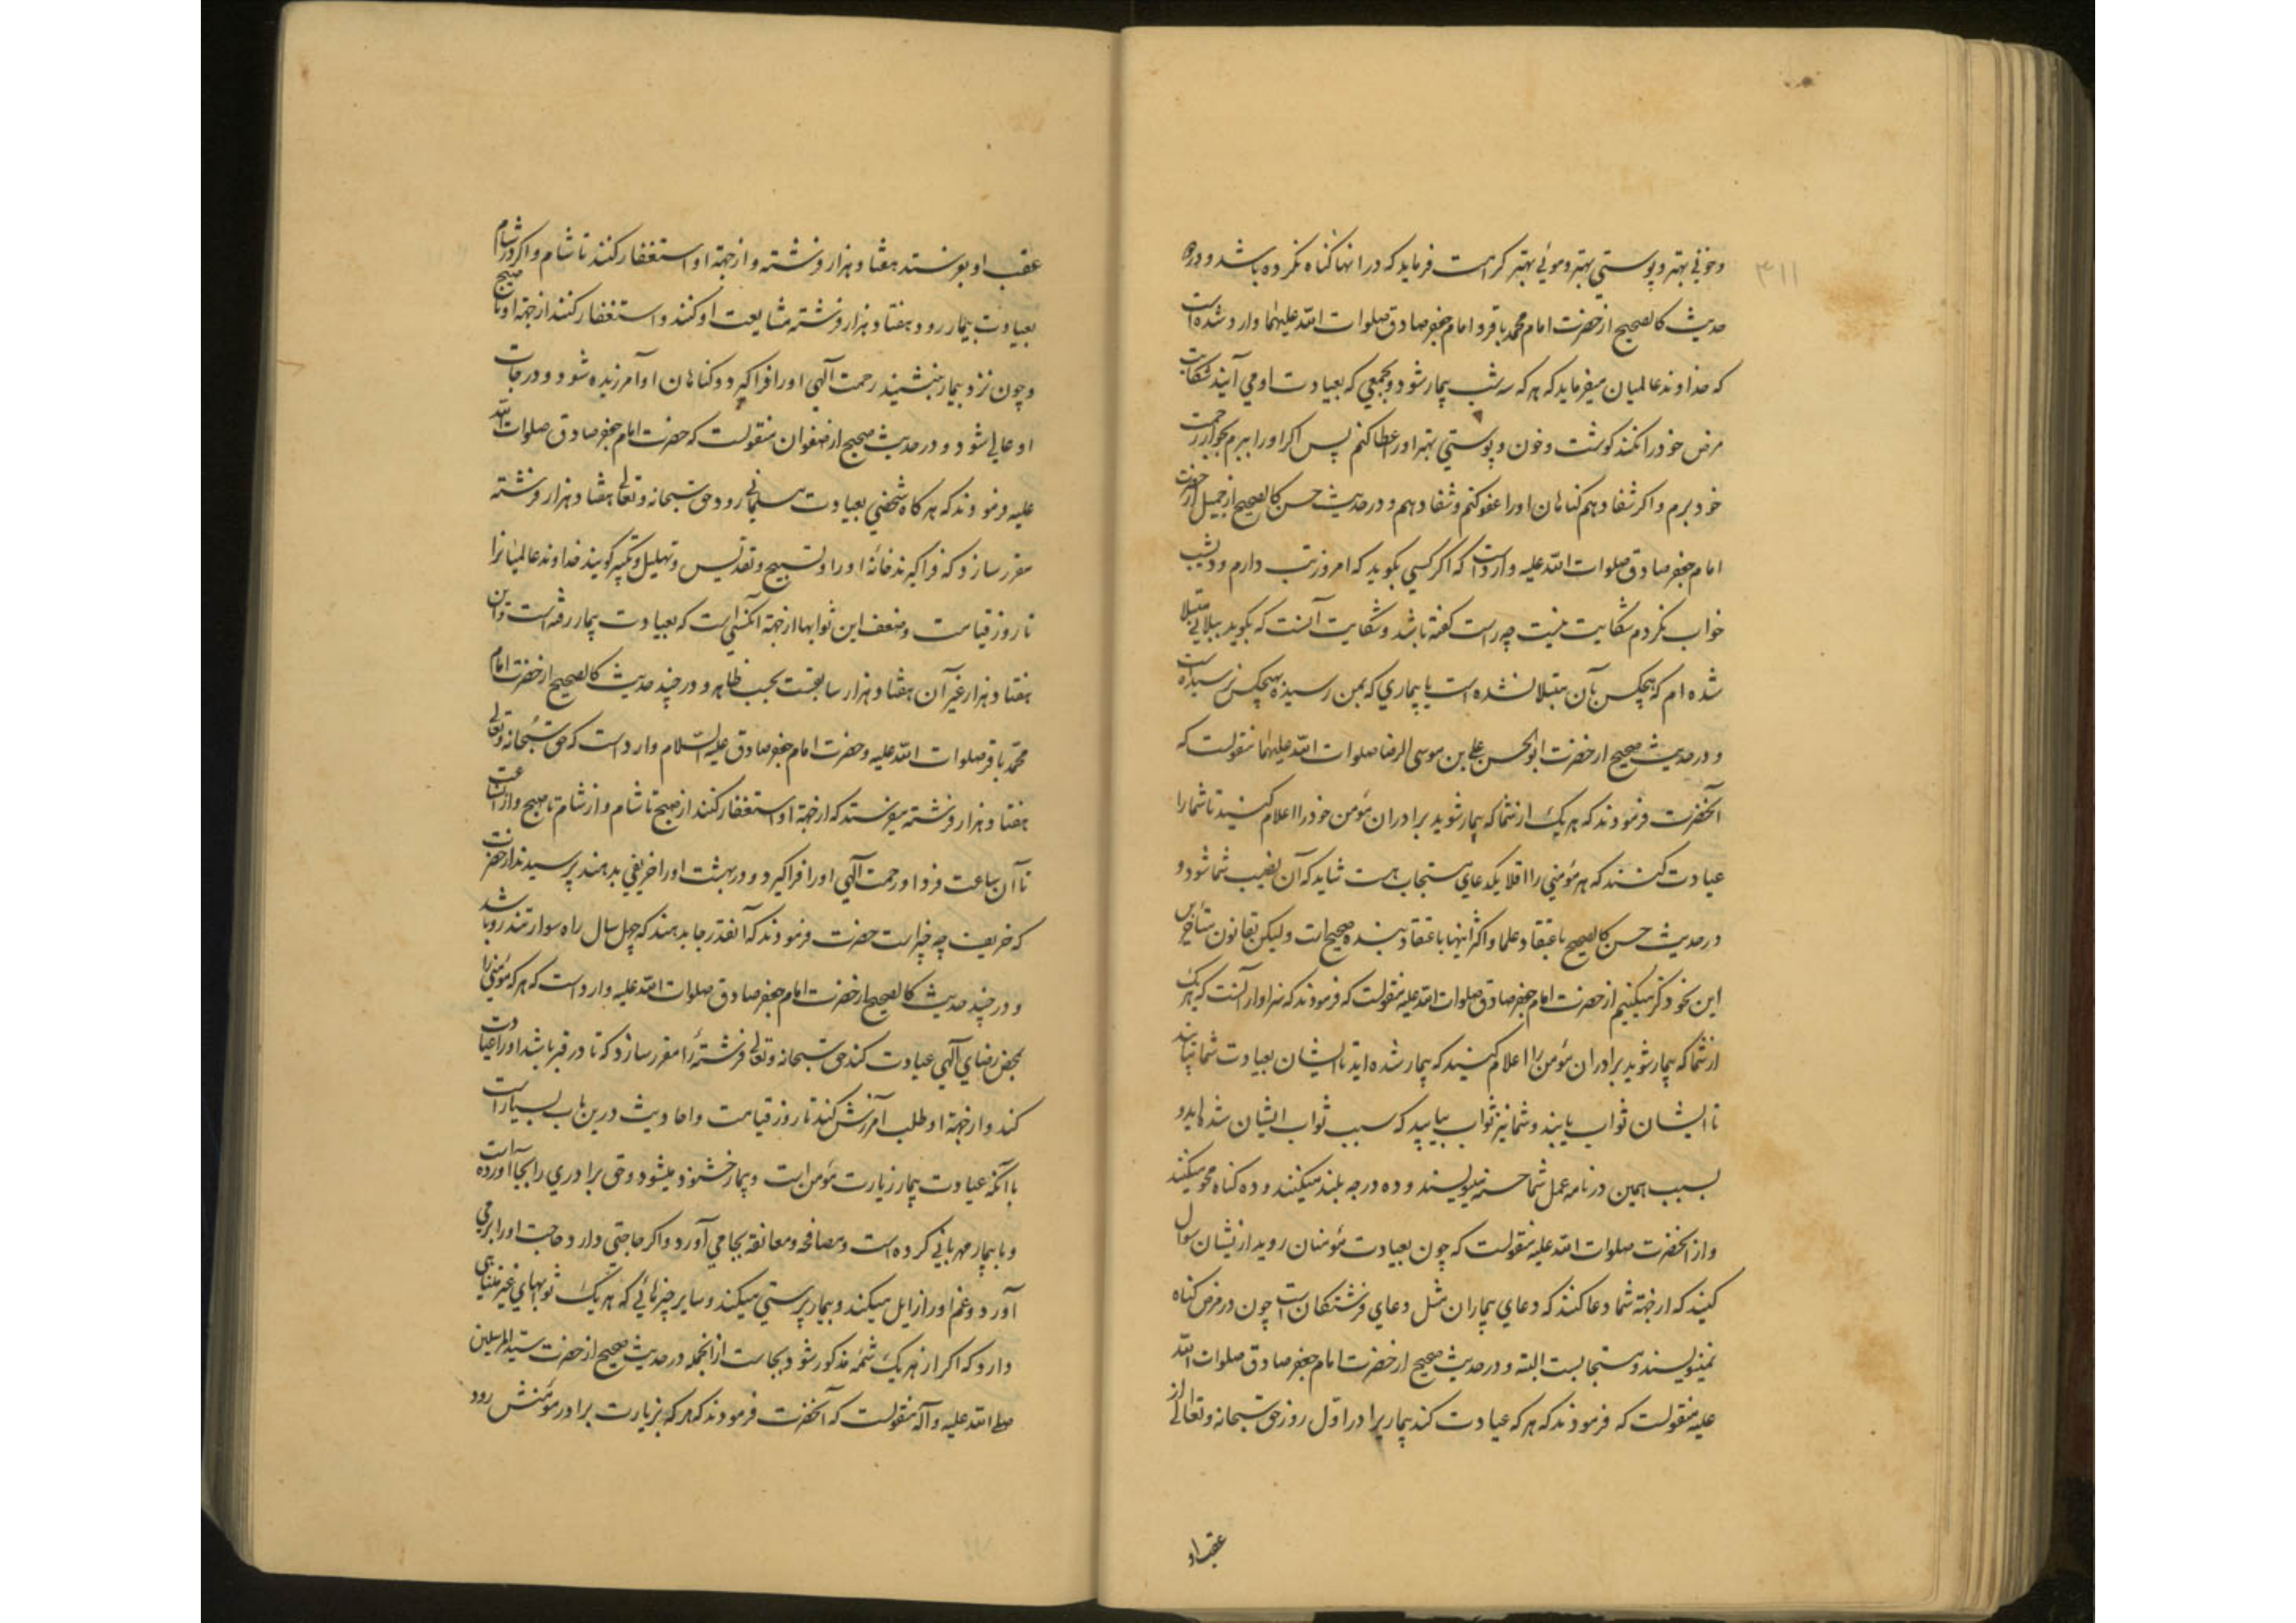 وخوني بهتر و پوستي بهتر و موئي بهتر كرامت فرمايد كه در انها كناه نكرده باشد و در ده
حديث كالصحيح از حضرت امام محمد باقر و امام جعفر صادق صلوات الله عليهما وارد شده است
كه خداوند عالميان ميفرمايد كه هر كه سه شب بيمار شود و بجمعي كه بعيادت او مي آيند شكايت
مرض خود را نكند كوشت و خون و پوستي بهتر او را عطا كنم پس اكر او را ببرم بجوار رحمت
خود برم و اكر شفا دهم كناهان او را عفو كنم و شفا دهم و در حديث حسن كالصحيح از جميل از حضرت
امام جعفر صادق صلوات الله عليه وارد است كه اكر كسي بكويد كه امروز تب دارم و ديشب
خواب نكردم شكايت نيست چه راست كفته باشد و شكايت آنست كه بكويد ببلائي مبتلا
شده ام كه هيچكس بآن مبتلا نشده است يا بيماري كه بمن رسيده بهيچكس نرسيده است
و در حديث صحيح از حضرت ابو الحسن علي بن موسى الرضا صلوات الله عليهما منقولست كه
آنحضرت فرمودند كه هر يك از شما كه بيمار شويد برادران مؤمن خود را اعلام كنيد تا شما را
عيادت كنند كه هر مؤمني را اقلا يكدعاي مستجاب هست شايد كه آن نصيب شما شود و
در حديث حسن كالصحيح باعتقاد علما و اكثر اينها باعتقاد بنده صحيح است وليكن بقانون متأخرين
اين نحو ذكر ميكنيم از حضرت امام جعفر صادق صلوات الله عليه منقولست كه فرمودند كه سزاوار آنست كه هر يك
از شما كه بيمار شويد برادران مؤمن را اعلام كنيد كه بيمار شده ايد تا ايشان بعيادت شما بيايند
تا ايشان ثواب يابند و شما نيز ثواب بيابيد كه سبب ثواب ايشان شده ايد و
بسبب همين در نامه عمل شما حسنه مينويسند و ده درجه بلند ميكنند و ده كناه محو ميكنند
و از آنحضرت صلوات الله عليه منقولست كه چون بعيادت مؤمنان رويد از يشان سوال
كنيد كه از جهة شما دعا كنند كه دعاي بيماران مثل دعاي فرشتكان است چون در مرض كناه
نمينويسند و مستجابست البته و در حديث صحيح از حضرت امام جعفر صادق صلوات الله
عليه منقولست كه فرمودند كه هر كه عيادت كند بيماريرا در اول روز حق سبحانه و تعالى از
عقب او
عقب او بفرستد هفتاد هزار فرشته و از جهة او استغفار كنند تا شام و اكر در شام
بعيادت بيمار رود هفتاد هزار فرشته مشايعت او كنند و استغفار كنند از جهة او تا صبح
و چون نزد بيمار بنشيند رحمت آلهي او را فرا كيرد و كناهان او آمرزيده شود و درجات
او عالي شود و در حديث صحيح از صفوان منقولست كه حضرت امام جعفر صادق صلوات الله
عليه فرمودند كه هر كاه شخصي بعيادت مسلماني رود حق سبحانه و تعالى هفتاد هزار فرشته
مقرر سازد كه فرا كيرند خانه او را و تسبيح و تقديس و تهليل و تكبير كويند خداوند عالميانرا
تا روز قيامت و نصف اين ثوابها از جهة آنكسي است كه بعيادت بيمار رفته است و اين
هفتاد هزار غير آن هفتاد هزار سابقست بحسب ظاهر و در چند حديث كالصحيح از حضرت امام
محمد باقر صلوات الله عليه و حضرت امام جعفر صادق عليه السلام وارد است كه حق سبحانه و تعالى
هفتاد هزار فرشته ميفرستد كه از جهة او استغفار كنند از صبح تا شام و از شام تا صبح و از آن ساعت
تا آن ساعت فردا و رحمت آلهي او را فرا كيرد و در بهشت او را خريفي بدهند پرسيدند از حضرت
كه خريف چه چيز است حضرت فرمودند كه آنقدر جا بدهند كه چهل سال راه سوار تند رو باشد
و در چند حديث كالصحيح از حضرت امام جعفر صادق صلوات الله عليه وارد است كه هر كه مؤمني را
محض رضاي آلهي عيادت كند حق سبحانه و تعالى فرشتهٔ را مقرر سازد كه تا در قبر باشد او را عيادت
كند و از جهة او طلب آمرزش كند تا روز قيامت و احاديث درين باب بسيار است
با آنكه عيادت بيمار زيارت مؤمن است و بيمار خشنود ميشود و حق برادري را بجا آورده است
و با بيمار مهرباني كرده است و مصافحه و معانقه بجا مي آورد و اكر حاجتي دارد حاجت او را بر مي
آورد و غم او را زايل ميكند و بيمار پرستي ميكند و ساير چيزهائي كه هر يك ثوابهاي غير متناهي
دارد كه اكر از هر يك شمهٔ مذكور شود بجاست از انجمله در حديث صحيح از حضرت سيد المرسلين
صلى الله عليه و آله منقولست كه آنحضرت فرمودند كه هر كه بزيارت برادر مؤمنش رود